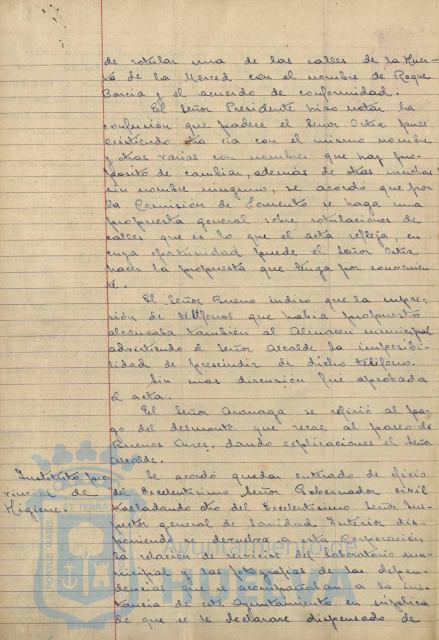 de rotular una de las calles de la Huer-
ta de la Merced con el nombre de Roque
Barcia y el acuerdo de conformidad.
El Señor Presidente hizo notar la
confusión que padece el Señor Oria pues
existiendo otra via con el mismo nombre
y otras varias con nombres que hay pro-
posito de cambiar, además de otras muchas
sin nombre ninguno, se acordo que por
la Comisión de Fomento se haga una
propuesta general sobre rotulaciones de
calles que es lo que el acta refleja, en
cuya oportunidad puede el Señor Oria
hacer la propuesta que tenga por convenien-
te.
El Señor Bueno indico que la supre-
sión de teléfonos que habia propuesto
alcanzaba tambien al Almacen municipal
advirtiendo el Señor Alcalde la imposibi-
lidad de prescindir de dicho teléfono.
Sin mas discusión fué aprobada
el acta.
El Señor Aronaga se refirió al pa-
go del desmonte que recae al paseo de
Buenos Aires, dando explicaciones el Señor
Alcalde.
Instituto pro-
vincial de
Higiene.
Se acordó quedar enterado de oficio
del Excelentisimo Señor Gobernador civil
trasladando otro del Excelentisimo Señor Ins-
pector general de Sanidad Interior dis-
poniendo se devuelva a esta Corporación
la relación de servicios del Laboratorio mu-
nicipal y las fotografias de las depen-
dencias que se acompañaban a la ins-
tancia de este Ayuntamiento en suplica
de que se le declarare dispensado de
HUELVA